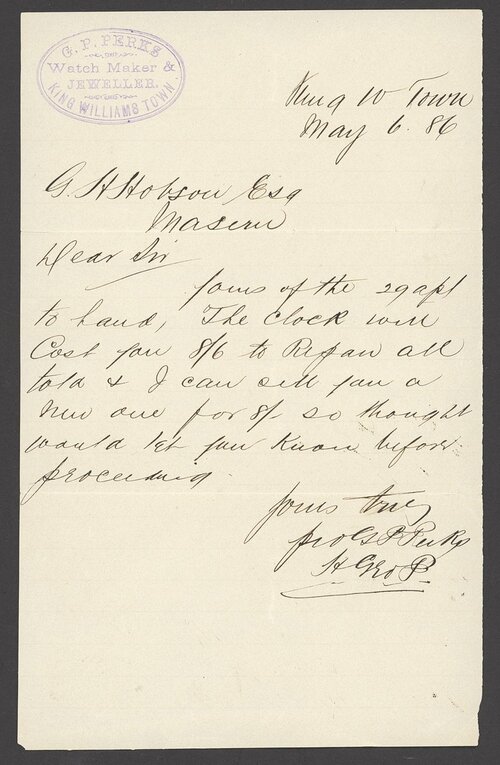 G. P. PERKS
Watch Maker &
JEWELLER.
KING WILLIAMS TOWN.
King W Town
May 6. 86
G. H Hobson Esq
Maseru
Dear Sir
Yours of the 29 apl
to hand, The Clock will
Cost you 8/6 to Repair all
told & I can sell you a
New one for 8/- so thought
would let you Know before
proceeding
Yours truly
pro G P Perks